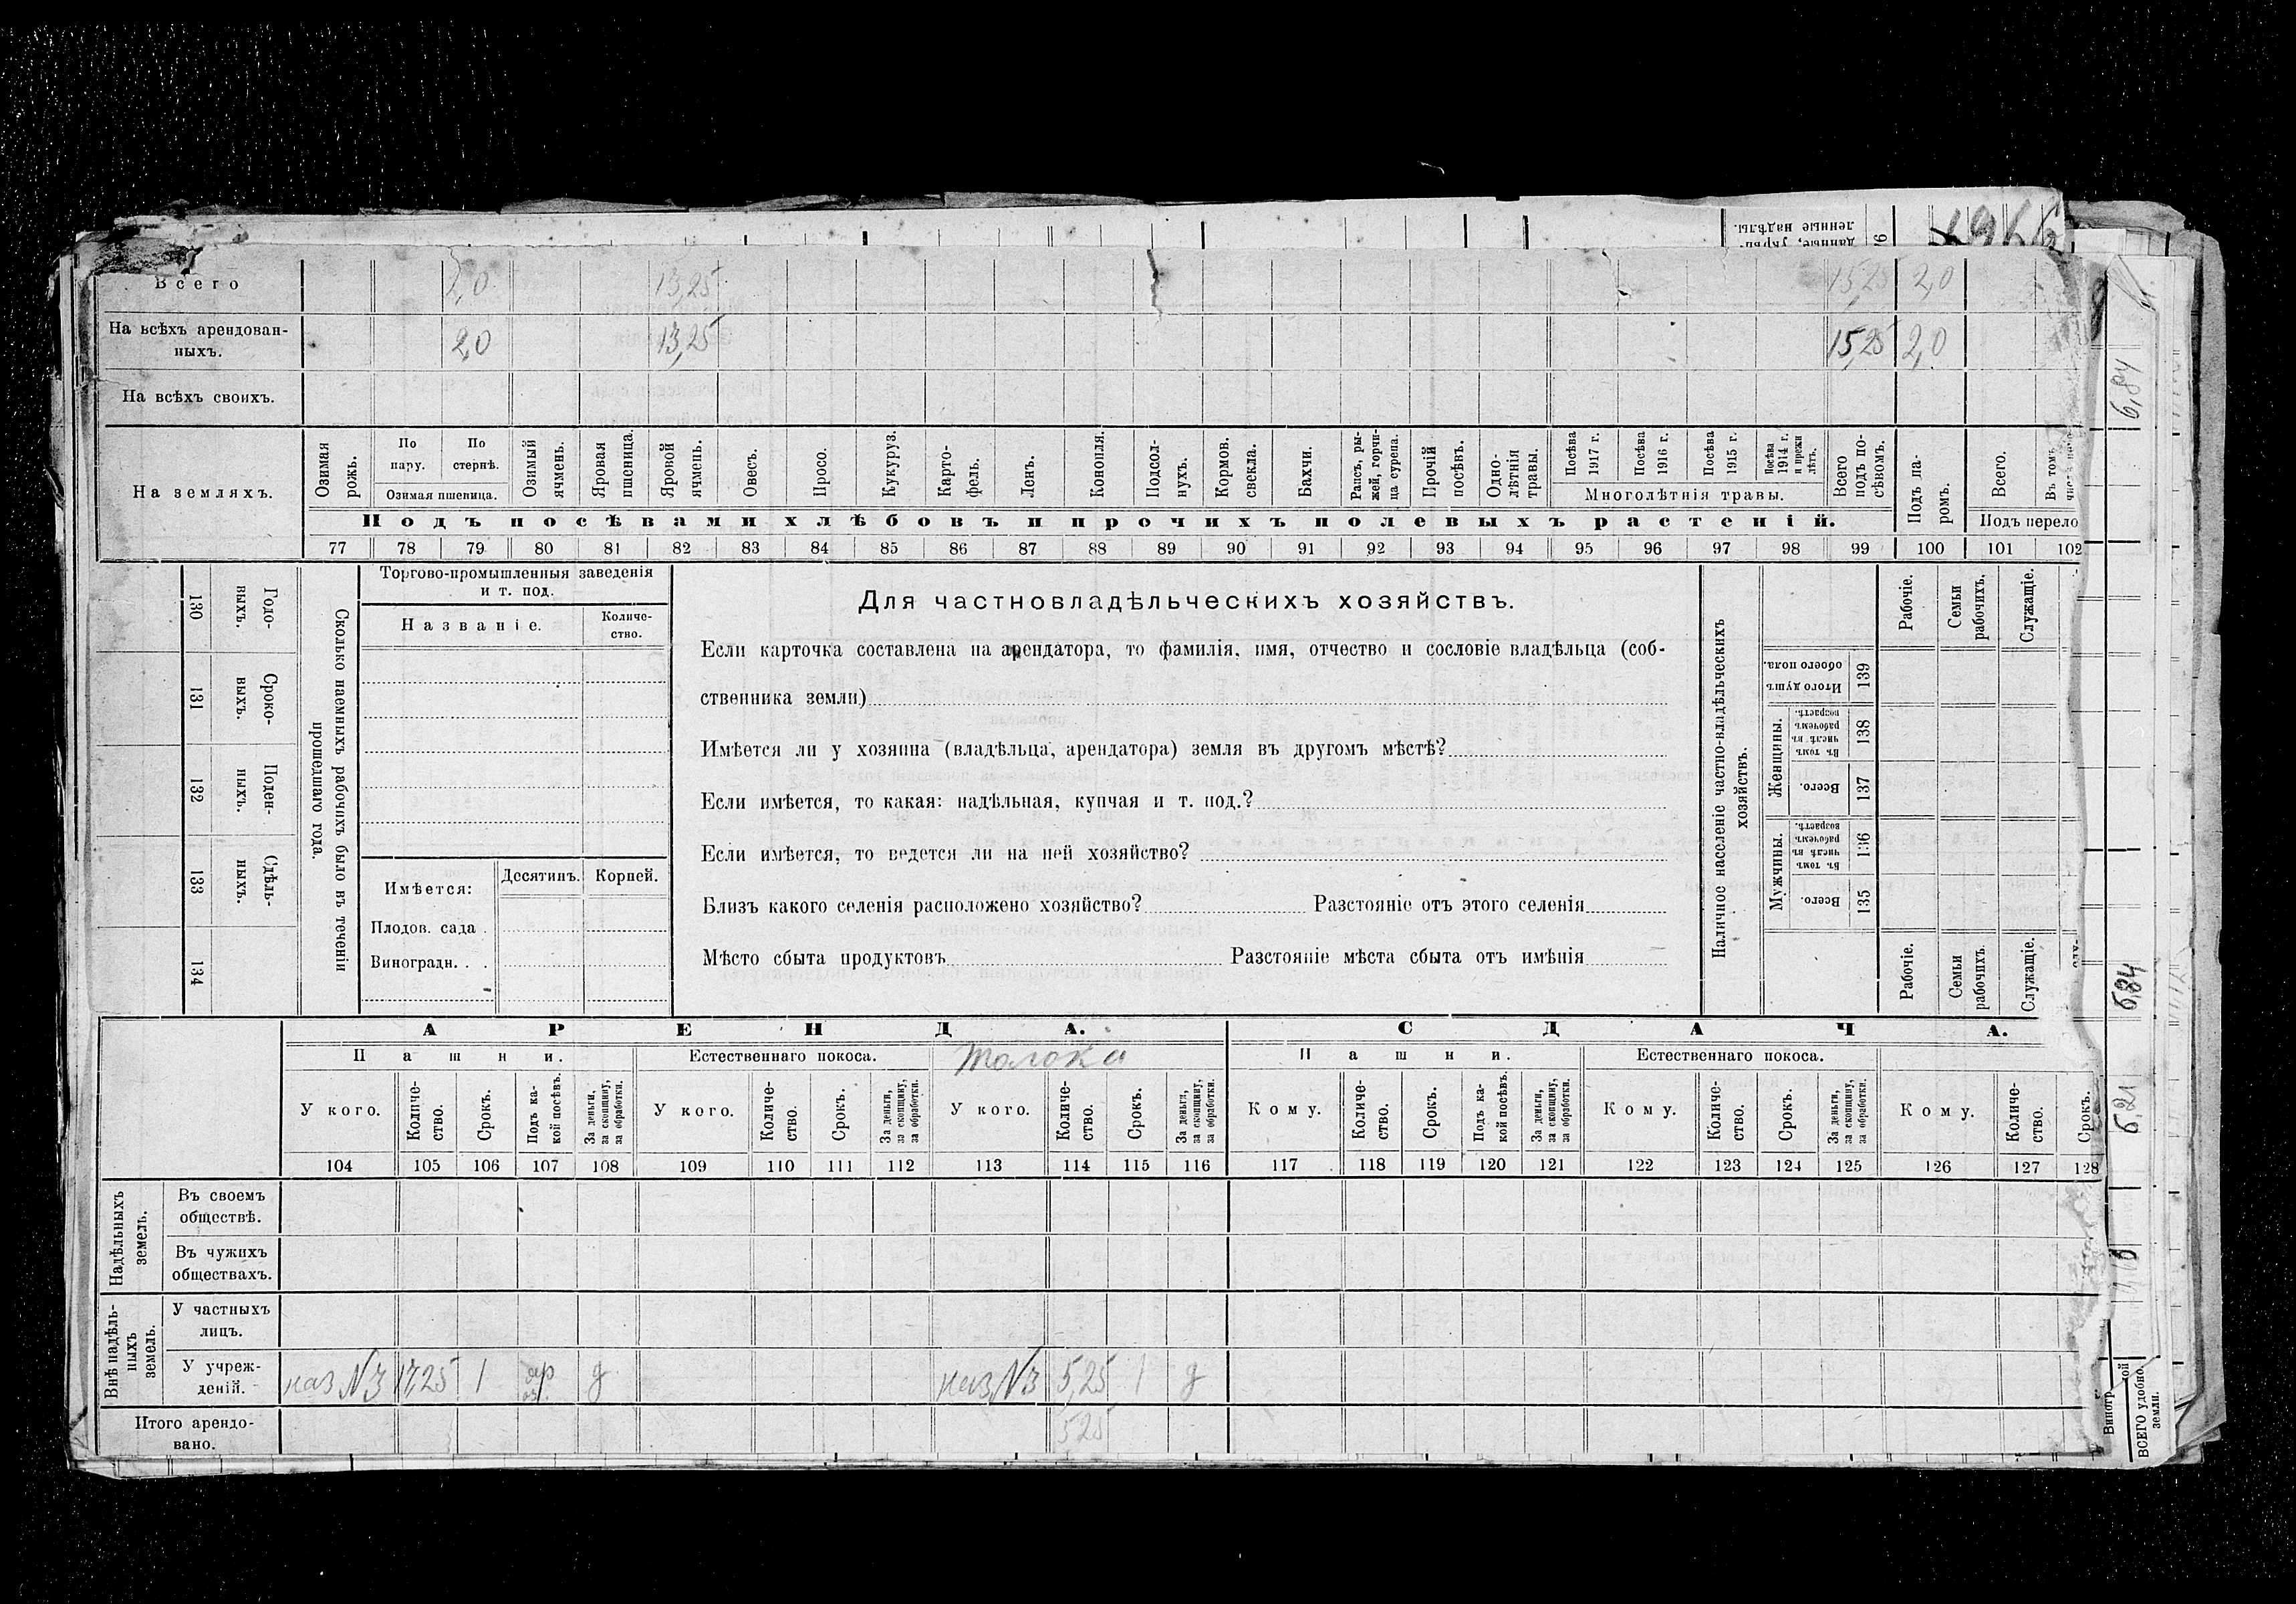 данные, укрѣп-
ленные надѣлы.
Всего 2,0 13,25 15,25 2,0
На всѣхъ арендован-
ныхъ. 2,0 13,25 15,25 2,0
На всѣхъ своихъ.
На земляхъ.
Озимая рожь.
По пару.
По стернѣ.
Озимая пшеница.
Озимый ячмень.
Яровая пшеница.
Яровой ячмень.
Овесъ.
Просо.
Кукуруз.
Карто-
фель.
Ленъ.
Конопля.
Подсол-
нухъ.
Кормов. свекла.
Бахчи.
Рапсъ, ры-
жей, горчи-
ца сурепа.
Прочій посѣвъ.
Одно-
лѣтнія травы.
Посѣва 1917 г.
Посѣва 1916 г.
Посѣва 1915 г.
Посѣва 1914 г. и прежн лѣтъ.
Многолѣтнія травы.
Всего подъ по-
сѣвомъ.
Подъ па-
ромъ.
Всего.
Въ томъ
Подъ перело
Подъ посѣвами хлѣбовъ и прочихъ полевыхъ растеній.
77 78 79 80 81 82 83 84 85 86 87 88 89 90 91 92 93 94 95 96 97 98 99 100 101 102
Годо-
выхъ.
130
Сроко-
выхъ.
131
Поден-
ныхъ.
132
Сдѣль-
ныхъ.
133
134
Сколько наемныхъ рабочихъ было въ теченіи
прошедшаго года.
Торгово-промышленныя заведенія
и т. под.
Названіе.
Количе-
ство.
Имѣется:
Десятинъ.
Корней.
Плодов. сада .
Виноградн. . .
Для частновладѣльческихъ хозяйствъ.
Если карточка составлена на арендатора, то фамилія, имя, отчество и сословіе владѣльца (соб-
ственника земли)
Имѣется ли у хозяина (владѣльца, арендатора) земля въ другомъ мѣстѣ?
Если имѣется, то какая: надѣльная, купчая и т. под.?
Если имѣется, то ведется ли на ней хозяйство?
Близъ какого селенія расположено хозяйство? Разстояніе отъ этого селенія
Мѣсто сбыта продуктовъ Разстояніе мѣста сбыта отъ имѣнія
Наличное населеніе частно-владѣльческихъ
хозяйствъ.
Итого душъ
обоего пола.
139
Женщины.
Въ томъ числѣ въ рабочемъ возрастѣ.
138
Всего.
137
Мужчины.
Въ томъ числѣ въ рабочемъ возрастѣ.
136
Всего.
135
Рабочіе.
Семьи рабочихъ.
Служащіе.
Рабочіе.
Семьи рабочихъ
Служащіе.
АРЕНДА.
СДАЧА.
Пашни.
Естественнаго покоса.
толока
Пашни.
Естественнаго покоса.
У кого.
Количе-
ство.
Срокъ.
Подъ ка-
кой посѣвъ.
За деньги, за скопщину, за обработки.
У кого.
Количе-
ство.
Срокъ.
За деньги, за скопщину, за обработки.
У кого.
Количе-
ство.
Срокъ.
За деньги, за скопщину, за обработки.
Кому.
Количе-
ство.
Срокъ.
Подъ ка-
кой посѣвъ.
За деньги, за скопщину, за обработки.
Кому.
Количе-
ство.
Срокъ.
За деньги, за скопщину, за обработки.
Кому.
Количе-
ство.
Срокъ.
104 105 106 107 108 109 110 111 112 113 114 115 116 117 118 119 120 121 122 123 124 125 126 127 128
Надѣльныхъ
земель.
Въ своемъ
обществѣ.
Въ чужихъ
обществахъ.
Внѣ надѣль-
ныхъ
земель.
У частныхъ
лицъ.
У учреж-
деній.
каз №3 17,25 1 яр оз. д каз №3 5,25 1 д
Итого арендо-
вано. 525
6,84
6,84
6,21
Виногр
ой
ВСЕГО удобно.
земли.